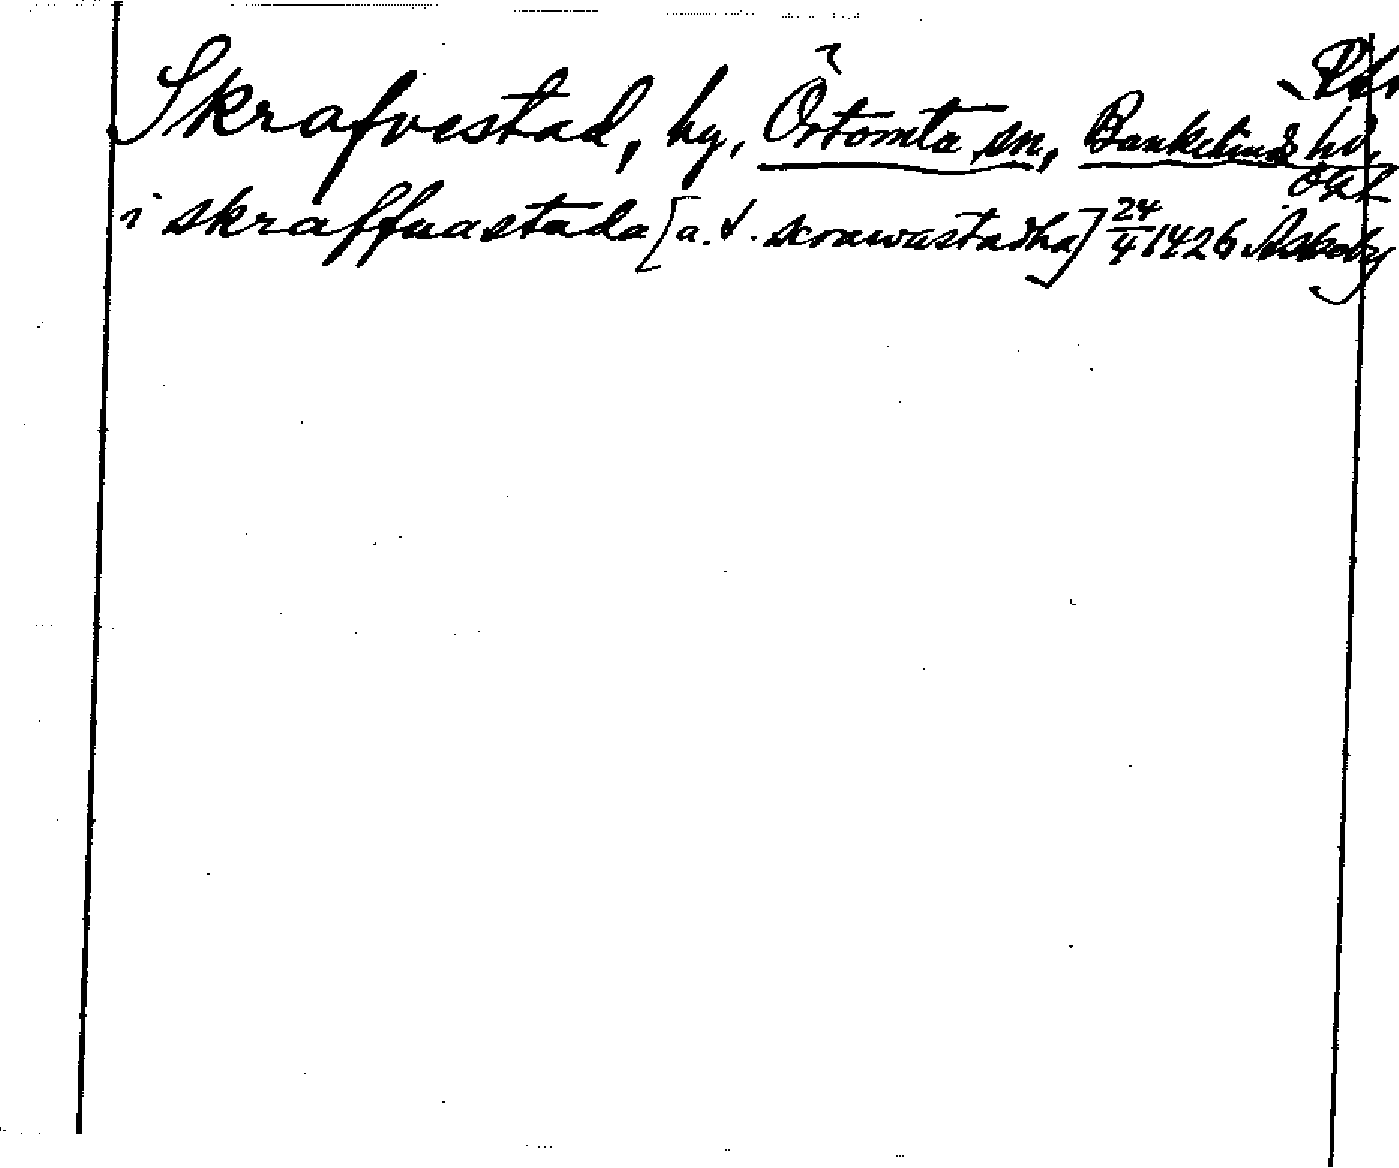 Skrafvestad, by, Örtomta sn, Bankekinds hd,
Ögl
i skraffuastada [a. t. scrawastadha] 24/4 1426 Askeby